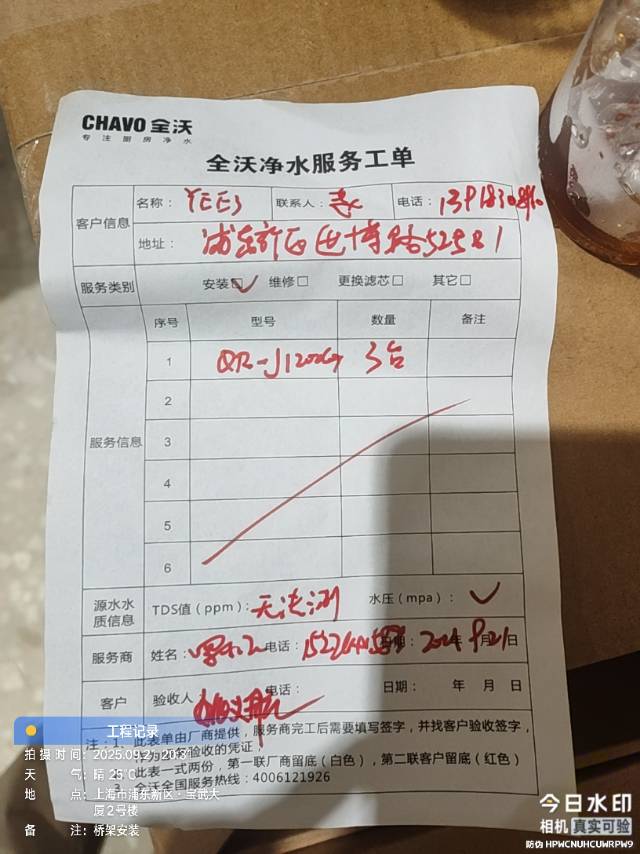 CHAVO 全沃
专注厨房净水
全沃净水服务工单
客户信息
名称： YEE3 联系人： 电话：
地址： 浦东新区世博路525号1
服务类别 安装☑ 维修□ 更换滤芯□ 其它□
服务信息
序号 型号 数量 备注
1 QR-J1200G 3台
2
3
4
5
6
源水水质信息
TDS值（ppm）： 无法测 水压（mpa）： ✓
服务商 姓名： 电话： 日期： 2024年9月21日
客户 验收人： 电话： 日期： 年 月 日
注：1、此表单由厂商提供，服务商完工后需要填写签字，并找客户验收签字，
作为验收的凭证
此表一式两份，第一联厂商留底（白色），第二联客户留底（红色）
3、全沃全国服务热线：4006121926
工程记录
拍摄时间：2025.09.21
天 气：晴 25℃
地 点：上海市浦东新区·宝武大
厦2号楼
备 注：桥架安装
今日水印
相机 真实可验
防伪 HPWCNUHCUWRPW9